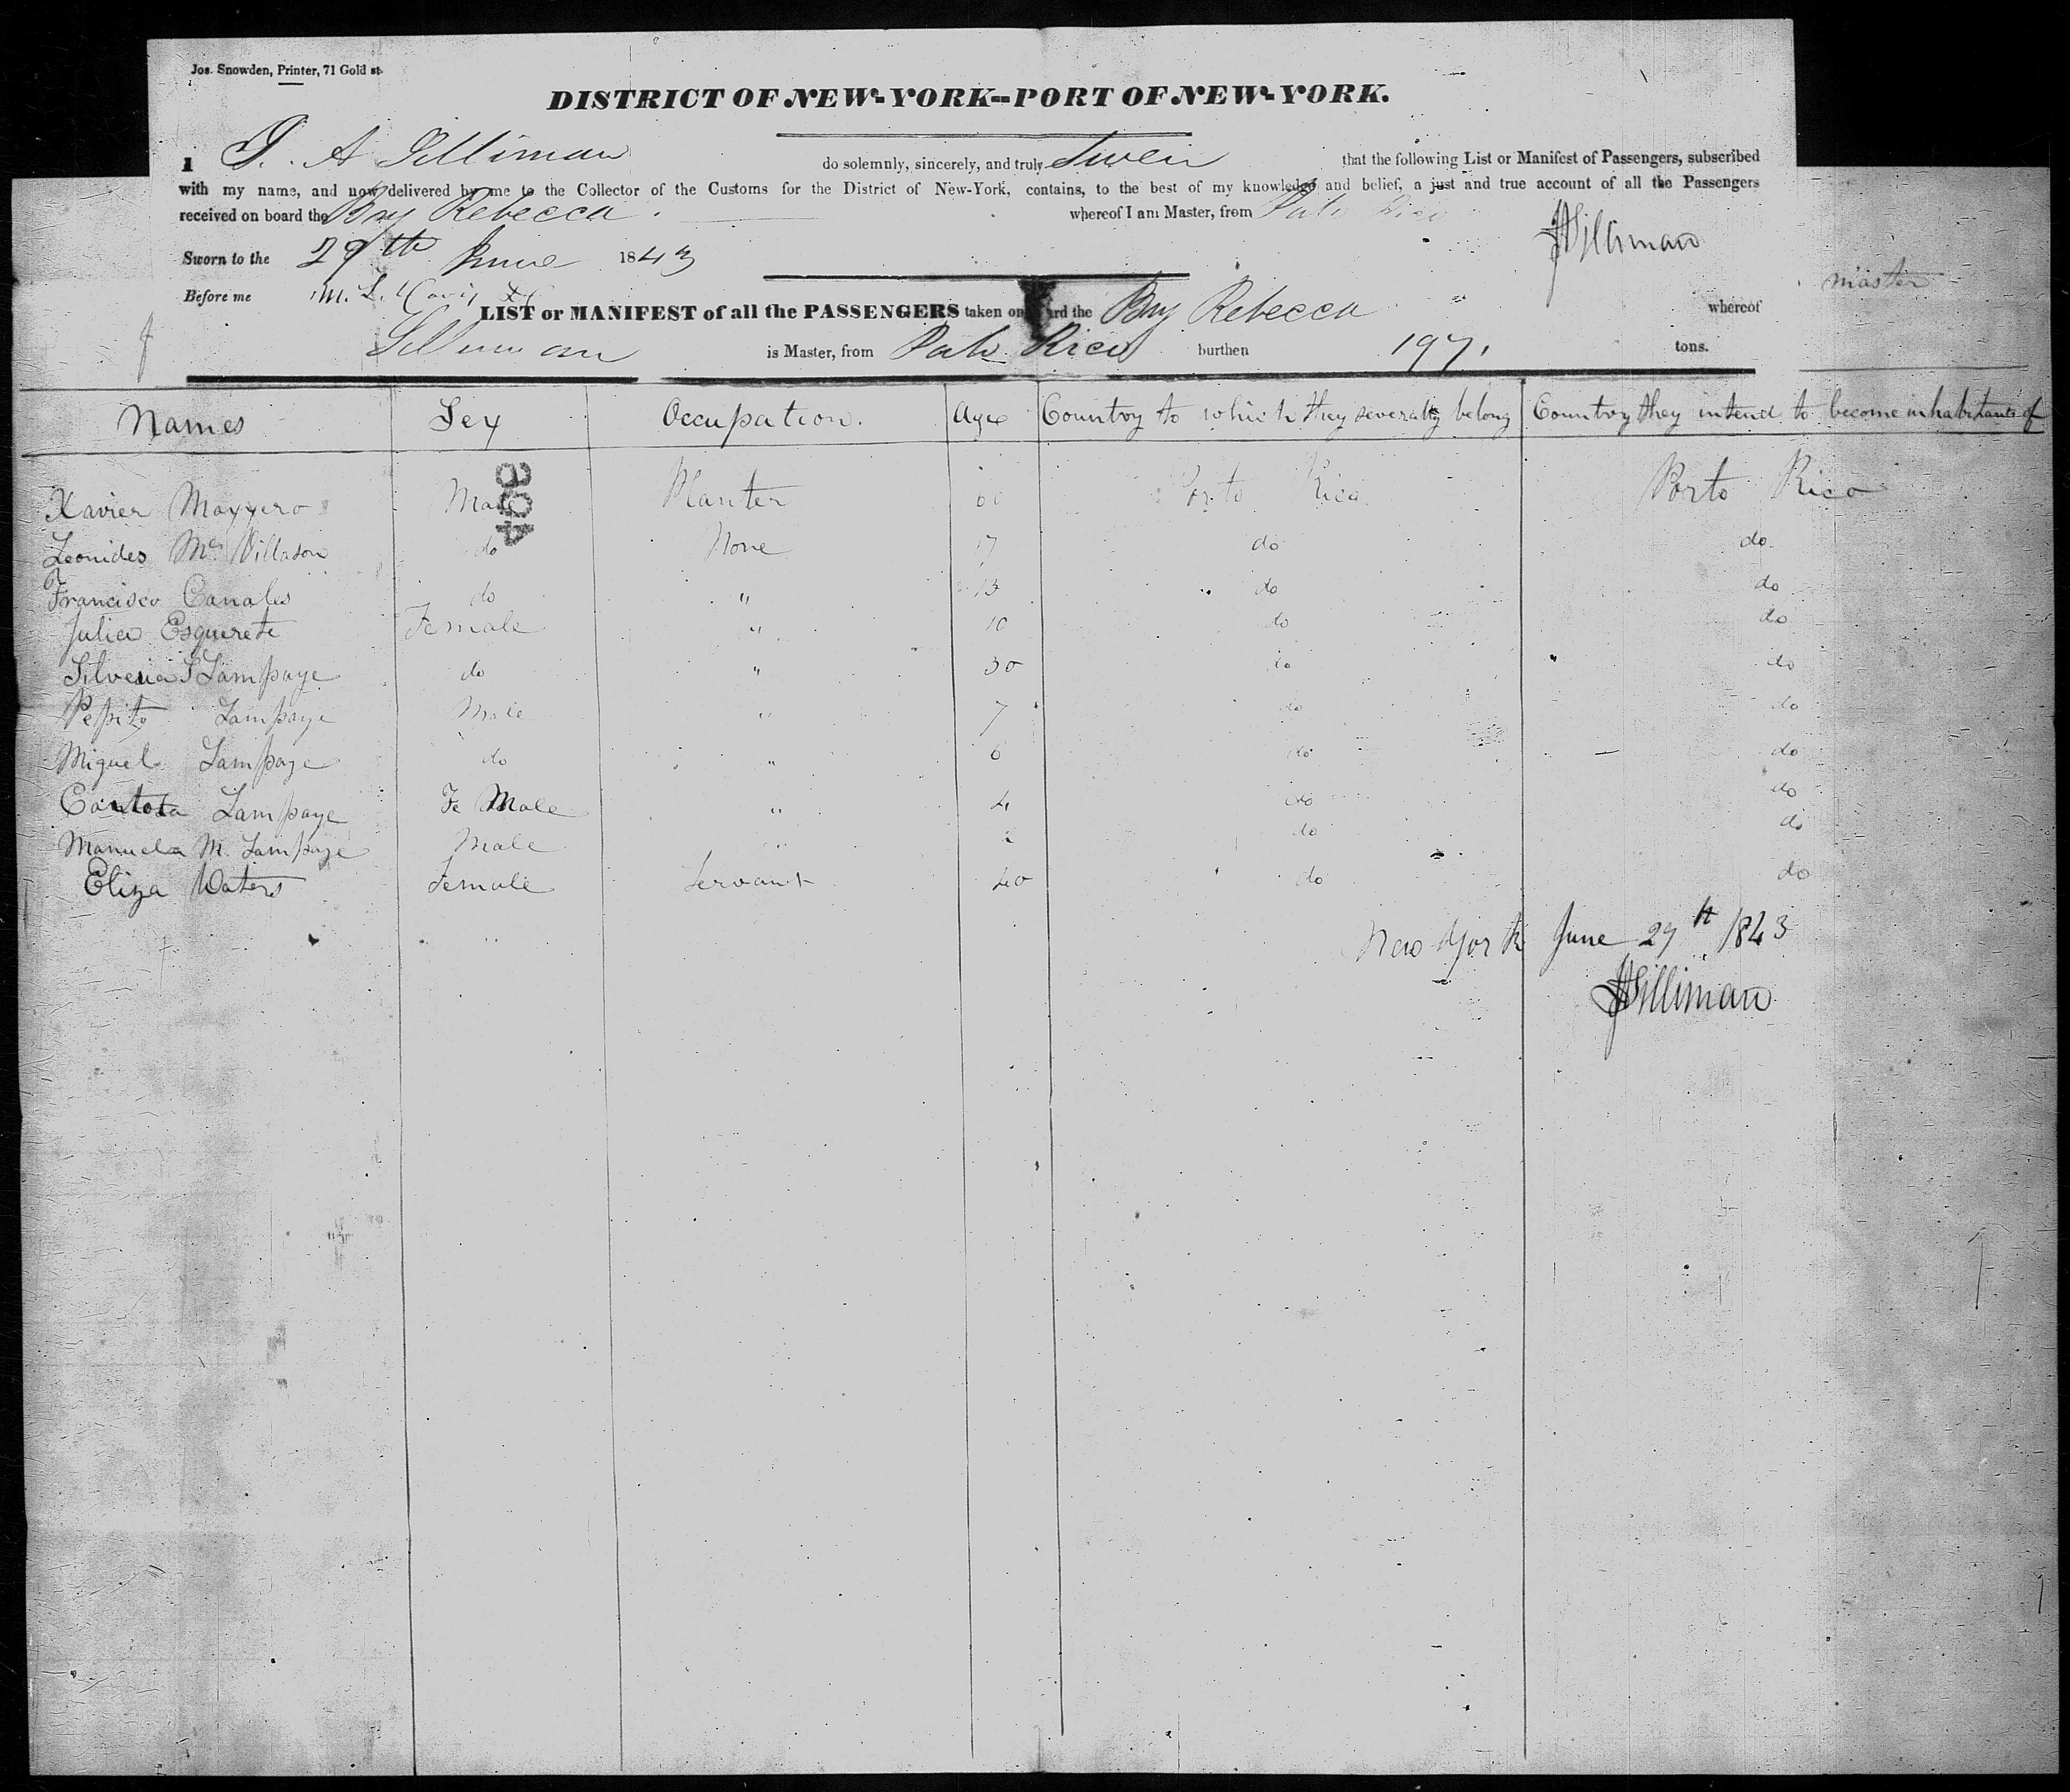 Jos. Snowden, Printer, 71 Gold st.
DISTRICT OF NEW-YORK--PORT OF NEW-YORK.
I J. A Silliman do solemnly, sincerely, and truly Swear that the following List or Manifest of Passengers, subscribed
with my name, and now delivered by me to the Collector of the Customs for the District of New-York, contains, to the best of my knowledge and belief, a just and true account of all the Passengers
received on board the Brig Rebecca whereof I am Master, from Porto Rico
Sworn to the 29th June 1843 Silliman
Before me
LIST or MANIFEST of all the PASSENGERS taken on board the Brig Rebecca whereof master
Silliman is Master, from Porto Rico burthen 197 tons.
Names Sex Occupation. Age Country to which they severally belong Country they intend to become inhabitants of
Xavier Mayyero Male Planter 60 Porto Rico Porto Rico
Leonides Mc Villason do None 17 do do
Francisco Canales do " 13 do do
Julia Esquerete Female " 10 do do
Silveria S Lampaye do " 30 do do
Pepito Lampaye Male " 7 do do
Miguel Lampaye do " 6 do do
Lampaye Fe Male " 4 do do
Manuela M. Lampaye Male " 2 do do
Eliza Waters Female Servant 40 do do
3084
New York June 29th 1843
Silliman